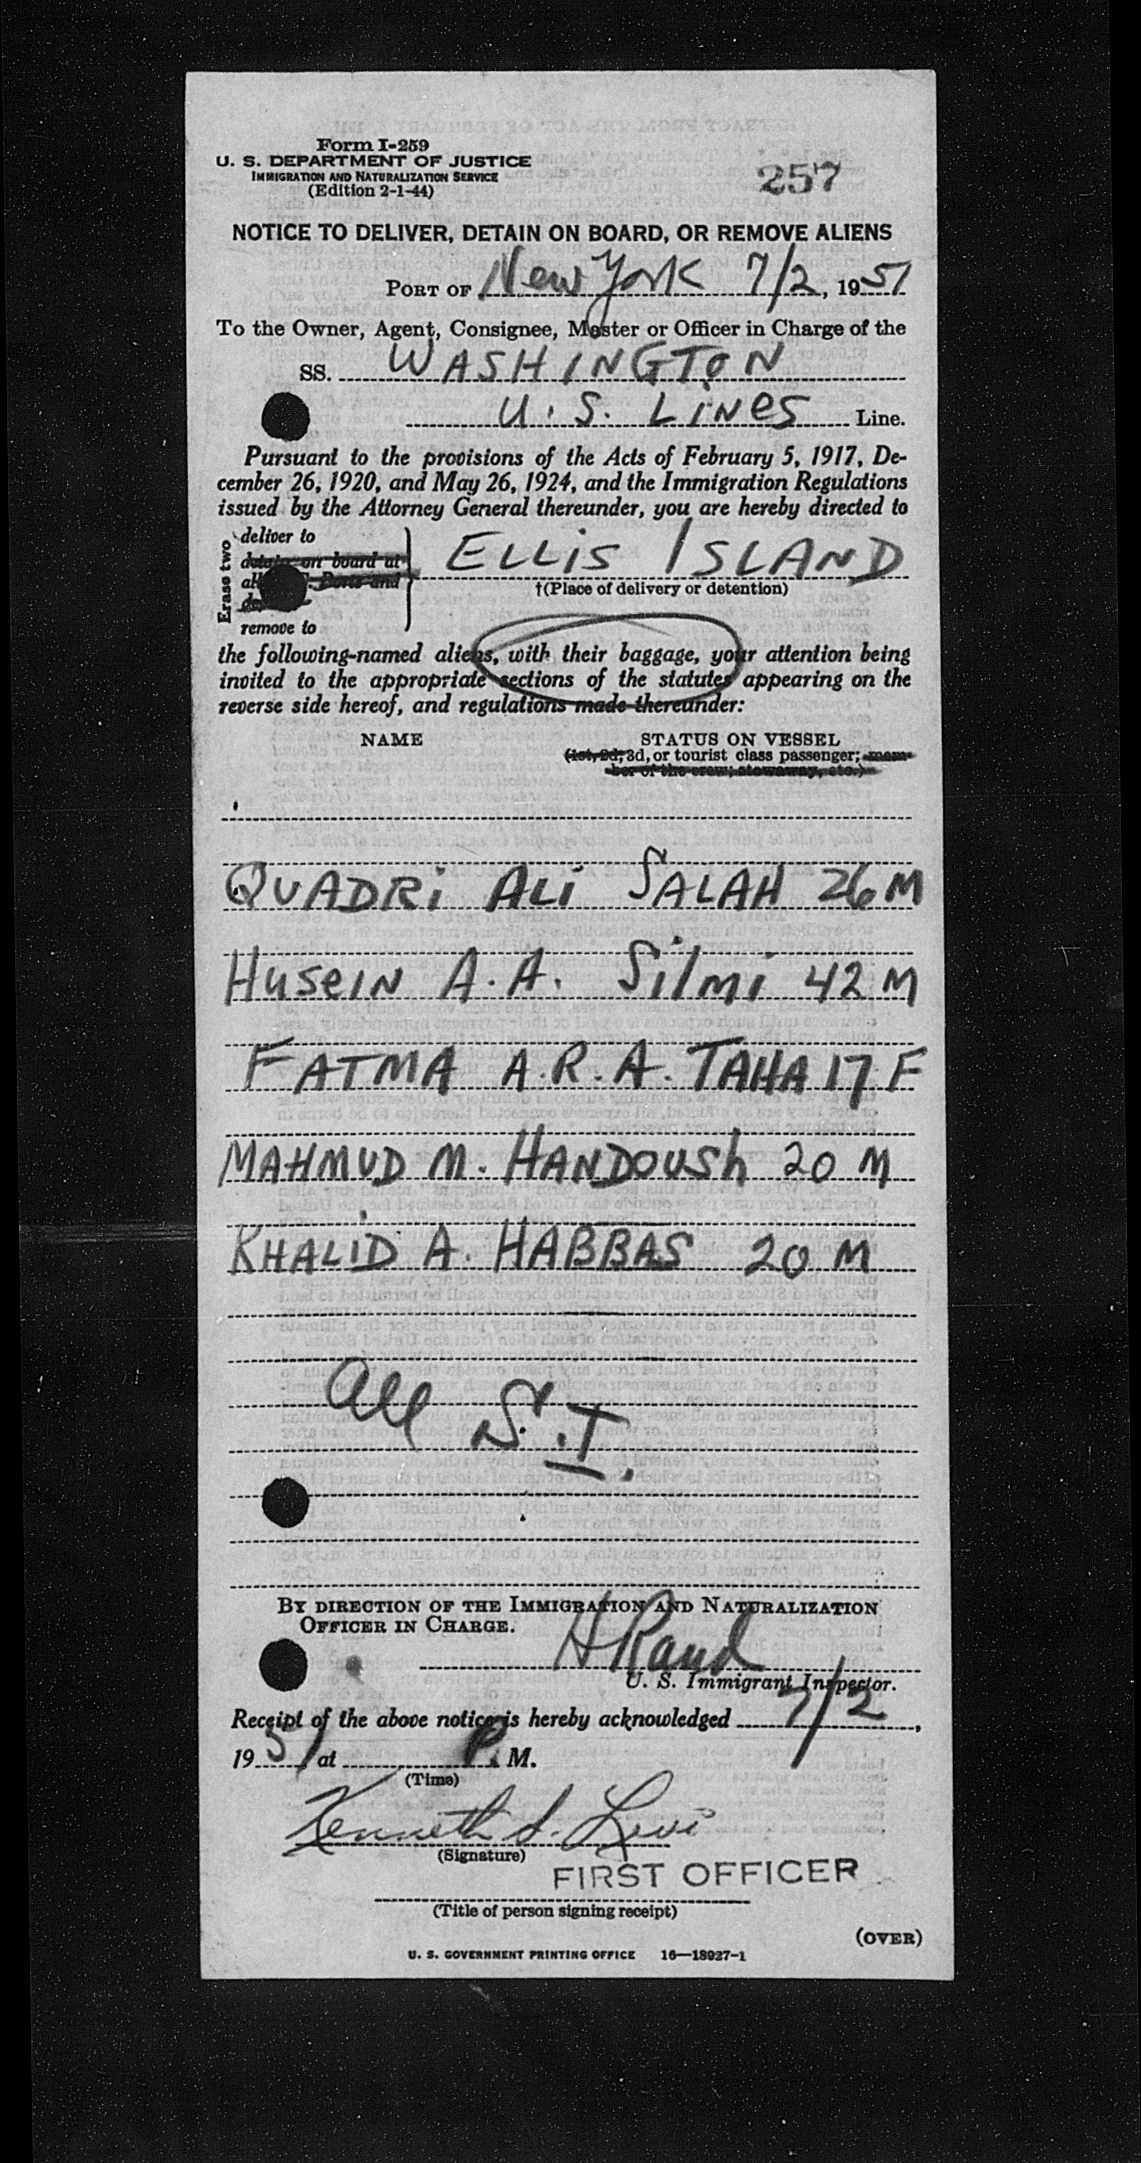 Form I-259
U. S. DEPARTMENT OF JUSTICE
IMMIGRATION AND NATURALIZATION SERVICE
(Edition 2-1-44)
257
NOTICE TO DELIVER, DETAIN ON BOARD, OR REMOVE ALIENS
PORT OF New York 7/2, 1951
To the Owner, Agent, Consignee, Master or Officer in Charge of the
SS. WASHINGTON
U. S. LINES Line.
Pursuant to the provisions of the Acts of February 5, 1917, De-
cember 26, 1920, and May 26, 1924, and the Immigration Regulations
issued by the Attorney General thereunder, you are hereby directed to
Erase two
deliver to
detain on board at
all Ports and
remove to
ELLIS ISLAND
†(Place of delivery or detention)
the following-named aliens, with their baggage, your attention being
invited to the appropriate sections of the statutes appearing on the
reverse side hereof, and regulations made thereunder:
NAME STATUS ON VESSEL
(1st, 2d, 3d, or tourist class passenger; mem-
ber of the crew; stowaway, etc.)
QUADRi ALi SALAH 26 M
HuseIN A. A. Silmi 42 M
FATMA A. R. A. TAHA 17 F
MAHMUD M. HANDOUSh 20 M
KHALID A. HABBAS 20 M
all S. I.
BY DIRECTION OF THE IMMIGRATION AND NATURALIZATION
OFFICER IN CHARGE.
H Rand
U. S. Immigrant Inspector.
Receipt of the above notice is hereby acknowledged 7/2,
1951 at P. M.
(Time)
Kenneth S. Levi
(Signature)
FIRST OFFICER
(Title of person signing receipt)
(OVER)
U. S. GOVERNMENT PRINTING OFFICE 16—18927-1